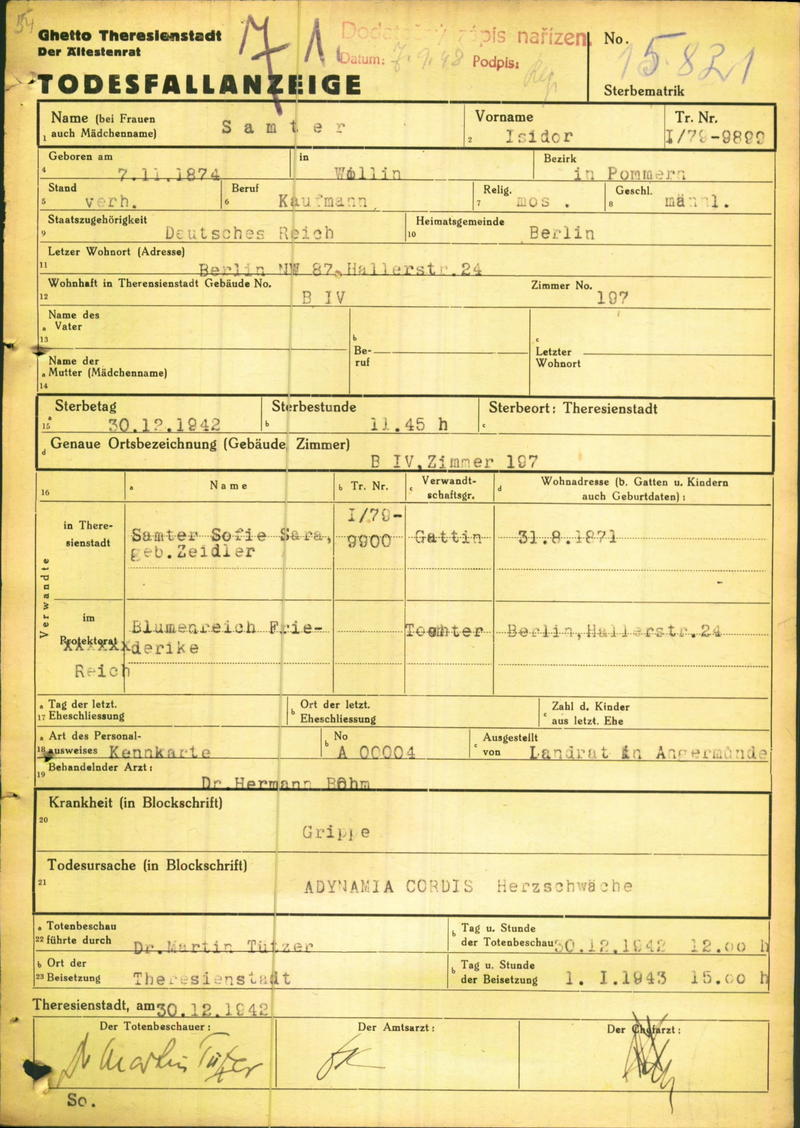 Ghetto Theresienstadt
Der Ältestenrat
71.
zápis nařízen
Datum: 7.9.48 Podpis:
No. 15.821
Sterbematrik
TODESFALLANZEIGE
Name (bei Frauen
1 auch Mädchenname) Samter
Vorname
2 Isidor
Tr. Nr.
I/79-9899
Geboren am
4 7.11.1874
in
Wollin
Bezirk
in Pommern
Stand
5 verh.
Beruf
6 Kaufmann.
Relig.
7 mos .
Geschl.
8 männl.
Staatszugehörigkeit
9 Deutsches Reich
Heimatsgemeinde
10 Berlin
Letzer Wohnort (Adresse)
11 Berlin NW 87,Hallerstr.24
Wohnhaft in Therensienstadt Gebäude No.
12 B IV
Zimmer No.
197
Name des
a Vater
13
b
Be-
ruf
c
Letzter
Wohnort
Name der
a Mutter (Mädchenname)
14
Sterbetag
15 a 30.12.1942
Sterbestunde
b 11.45 h
Sterbeort: Theresienstadt
c
d Genaue Ortsbezeichnung (Gebäude, Zimmer)
B IV,Zimmer 197
16
a Name
b Tr. Nr.
c Verwandt-
schaftsgr.
d Wohnadresse (b. Gatten u. Kindern
auch Geburtdaten) :
Verwandte
in There-
sienstadt
Samter Sofie Sara,
geb.Zeidler
I/79-
9900
Gattin
31.8.1871
im
Protektorat
Reich
Blumenreich Frie-
derike
Tochter
Berlin,Hallerstr.24
a Tag der letzt.
17 Eheschliessung
b Ort der letzt.
Eheschliessung
c Zahl d. Kinder
aus letzt. Ehe
a Art des Personal-
18 ausweises Kennkarte
b No
A 00004
c Ausgestellt
von Landrat in Angermünde
Behandelnder Arzt :
19 Dr.Hermann Böhm
Krankheit (in Blockschrift)
20 Grippe
Todesursache (in Blockschrift)
21 ADYNAMIA CORDIS Herzschwäche
a Totenbeschau
22 führte durch Dr.Martin Tützer
b Tag u. Stunde
der Totenbeschau 30.12.1942 12.00 h
b Ort der
23 Beisetzung Theresienstadt
b Tag u. Stunde
der Beisetzung 1. I.1943 15.00 h
Theresienstadt, am 30.12.1942
Der Totenbeschauer :
Der Amtsarzt :
Der Chefarzt :
Dr Martin Tützer
So.